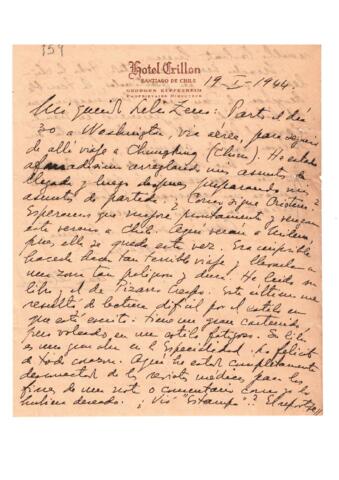 159
Hotel Crillon
SANTIAGO DE CHILE
GEORGES KUPPENHEIM
PROPRIETAIRE DIRECTEUR
19-I-1944
Mi querido : Parto el día
20 a Washington, vía aérea, para seguir
de allí viaje a Chungking (China). He estado
arreglando mis asuntos de
llegada y luego después preparando mis
asuntos de partida y Como sigue Cristina?
Esperamos que mejore prontamente y vengan
este verano a Chile. Aquí verán a
pues, ella se queda este vez. Era imposible
hacerla hacer tan terrible viaje y llevarla a
una zona tan peligrosa y dura. He leído su
libro, y el de Pizarro Crespo. Este último me
resulta de lectura difícil por el estilo en
que está escrito. Tiene un gran contenido,
pero volcado en un estilo fatigoso. Su libro
es un en la Especialidad. Lo felicito
de todo corazón. Aquí he estado completamente
desconectado de las revistas médicas para los
fines de una nota o comentario como yo lo
hubiera deseado. ¿Vió "Estampa"? El reportaje